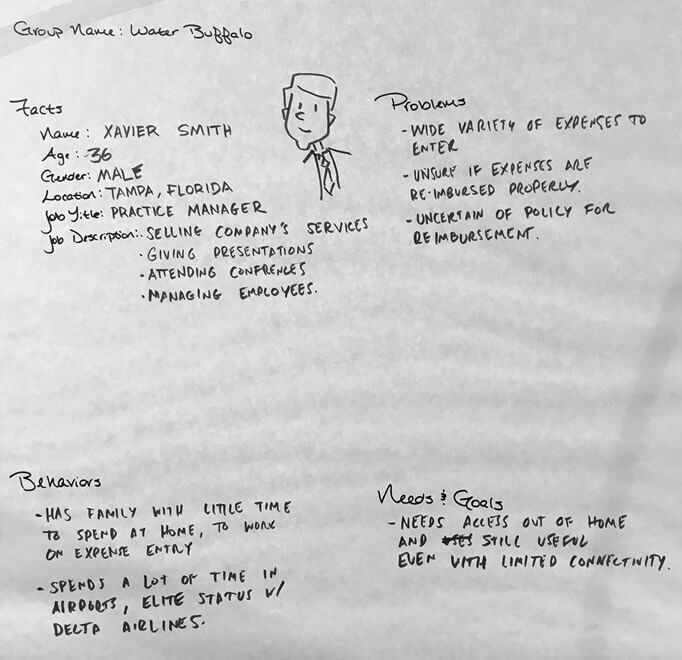 Group Name: Water Buffalo
Facts
Name: XAVIER SMITH
Age: 36
Gender: MALE
Location: TAMPA, FLORIDA
Job Title: PRACTICE MANAGER
Job Description: · SELLING COMPANY'S SERVICES
· GIVING PRESENTATIONS
· ATTENDING CONFRENCES
· MANAGING EMPLOYEES.
Problems
- WIDE VARIETY OF EXPENSES TO
ENTER
- UNSURE IF EXPENSES ARE
RE-IMBURSED PROPERLY.
- UNCERTAIN OF POLICY FOR
REIMBURSEMENT.
Behaviors
- HAS FAMILY WITH LITTLE TIME
TO SPEND AT HOME, TO WORK
ON EXPENSE ENTRY
- SPENDS A LOT OF TIME IN
AIRPORTS, ELITE STATUS W/
DELTA AIRLINES.
Needs & Goals
- NEEDS ACCESS OUT OF HOME
AND STILL USEFUL
EVEN WITH LIMITED CONNECTIVITY.